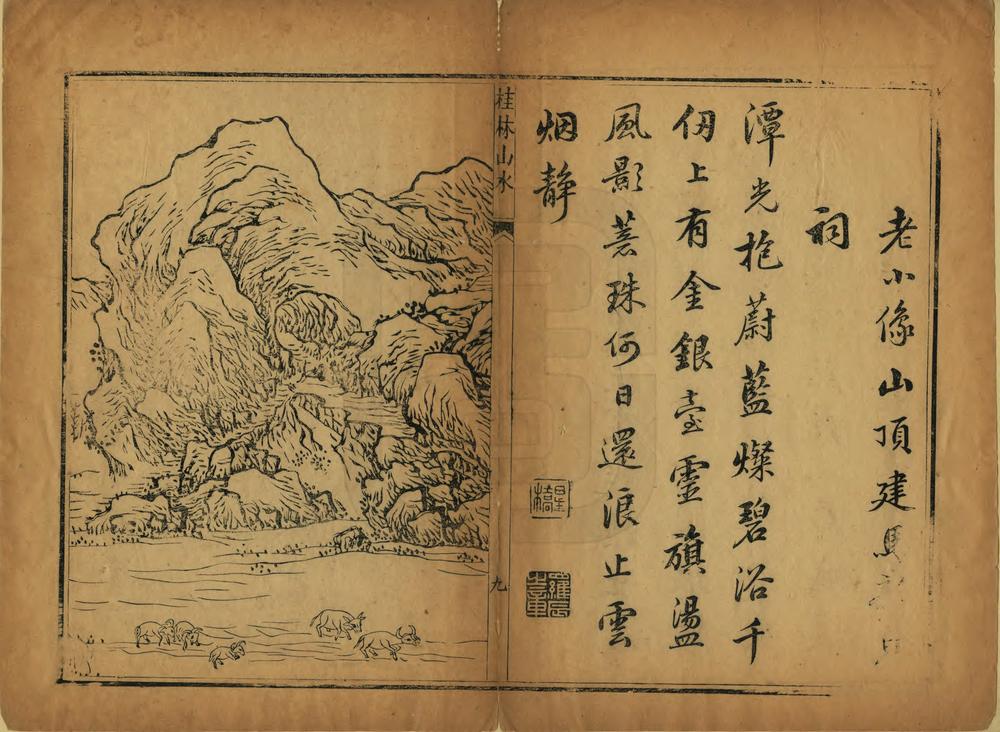 老小像山頂建馬
祠
潭光抱蔚藍燦碧浴千
仭上有金銀臺靈旗盪
風影薏珠何日還浪止雲
烟静
星橋
羅辰
桂林山水
九